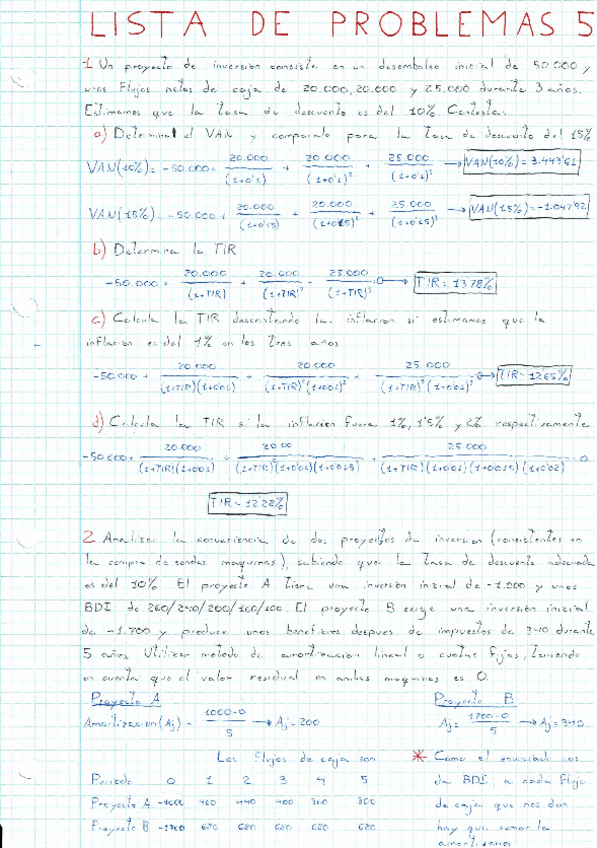 LISTA DE PROBLEMAS 5
1 Un proyecto de inversion consiste en un desembolso inicial de 50.000 y
unos flujos netos de caja de 20.000, 20.000 y 25.000 durante 3 años.
Estimamos que la tasa de descuento es del 10%. Contesta:
a) Determina el VAN y comparalo para la tasa de descuento del 15%
VAN(10%) = -50.000 + 20.000/(1+0'1) + 20.000/(1+0'1)² + 25.000/(1+0'1)³ → VAN(10%) = 3.493'61
VAN(15%) = -50.000 + 20.000/(1+0'15) + 20.000/(1+0'15)² + 25.000/(1+0'15)³ → VAN(15%) = -1.047'92
b) Determina la TIR
-50.000 + 20.000/(1+TIR) + 20.000/(1+TIR)² + 25.000/(1+TIR)³ = 0 → TIR = 13'78%
c) Calcula la TIR descontando la inflacion si estimamos que la
inflacion es del 1% en los tres años
-50.000 + 20.000/(1+TIR)(1+0'01) + 20.000/(1+TIR)²(1+0'01)² + 25.000/(1+TIR)³(1+0'01)³ = 0 → TIR = 12'65%
d) Calcula la TIR si la inflacion fuera 1%, 1'5% y 2% respectivamente
-50.000 + 20.000/(1+TIR)(1+0'01) + /(1+TIR)²(1+0'01)(1+0'015) + 25.000/(1+TIR)(1+0'01)(1+0'015)(1+0'02) = 0
TIR = 12'22%
2 Analizar la conveniencia de dos proyectos de inversion (consistentes en
la compra de sendas maquinas), sabiendo que la tasa de descuento adecuada
es del 10% El proyecto A tiene una inversion inicial de -1.000 y unos
BDI de 260/240/200/160/100. El proyecto B exige una inversion inicial
de -1.700 y produce unos beneficios despues de impuestos de 340 durante
5 años. Utilizar metodo de amortizacion lineal o cuotas fijas, teniendo
en cuenta que el valor residual en ambas maquinas es 0.
Proyecto A Proyecto B
Amortizacion (Aj) = 1000-0/5 → Aj = 200 Aj = /5 → Aj = 340
Los flujos de caja son * Como el enunciado nos
Periodo 0 1 2 3 4 5 da BDI, a cada flujo
Proyecto A -1000 460 440 400 360 300 de caja que nos dan
Proyecto B -1700 680 680 680 680 680 hay que sumar la
amortizacion